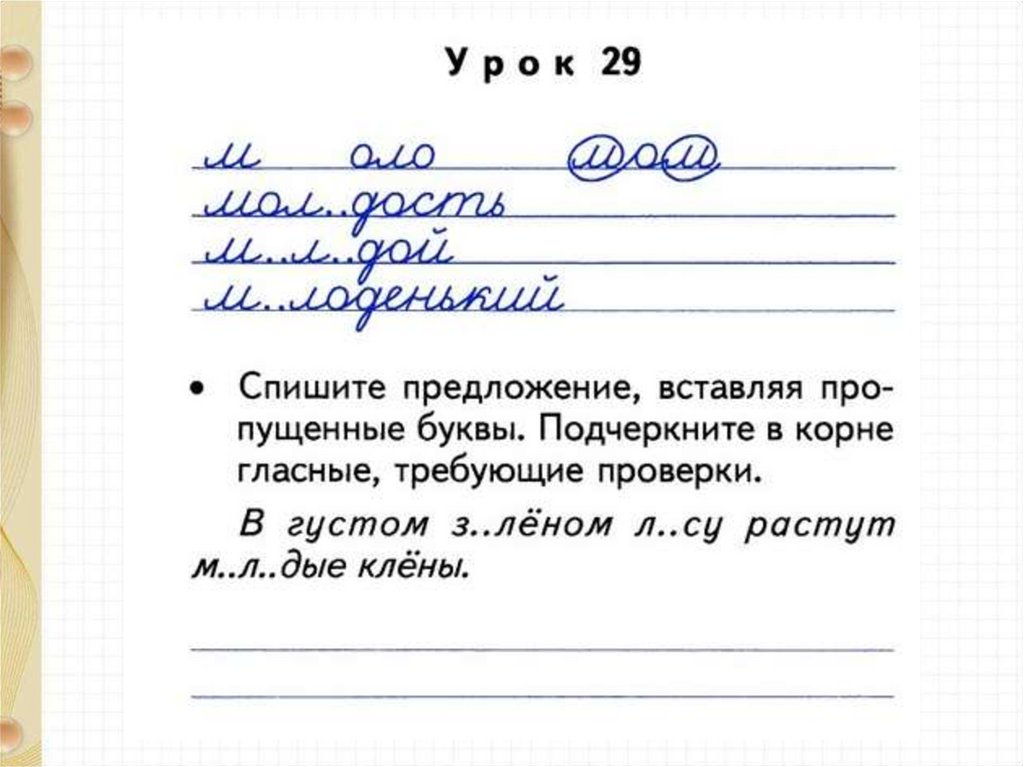 Урок 29
м оло мом
мол..дость
м..л..дой
м..лоденький
• Спишите предложение, вставляя про-
пущенные буквы. Подчеркните в корне
гласные, требующие проверки.
В густом з..лёном л..су растут
м..л..дые клёны.